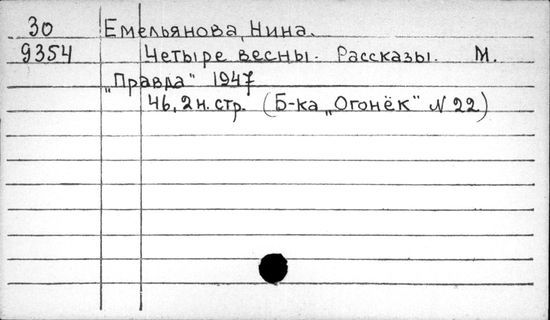 30 Емельянова, Нина.
9354 Четыре весны. Рассказы. М.
„Правда" 1947
46, 2 н. стр. (Б-ка „Огонёк" N 22)